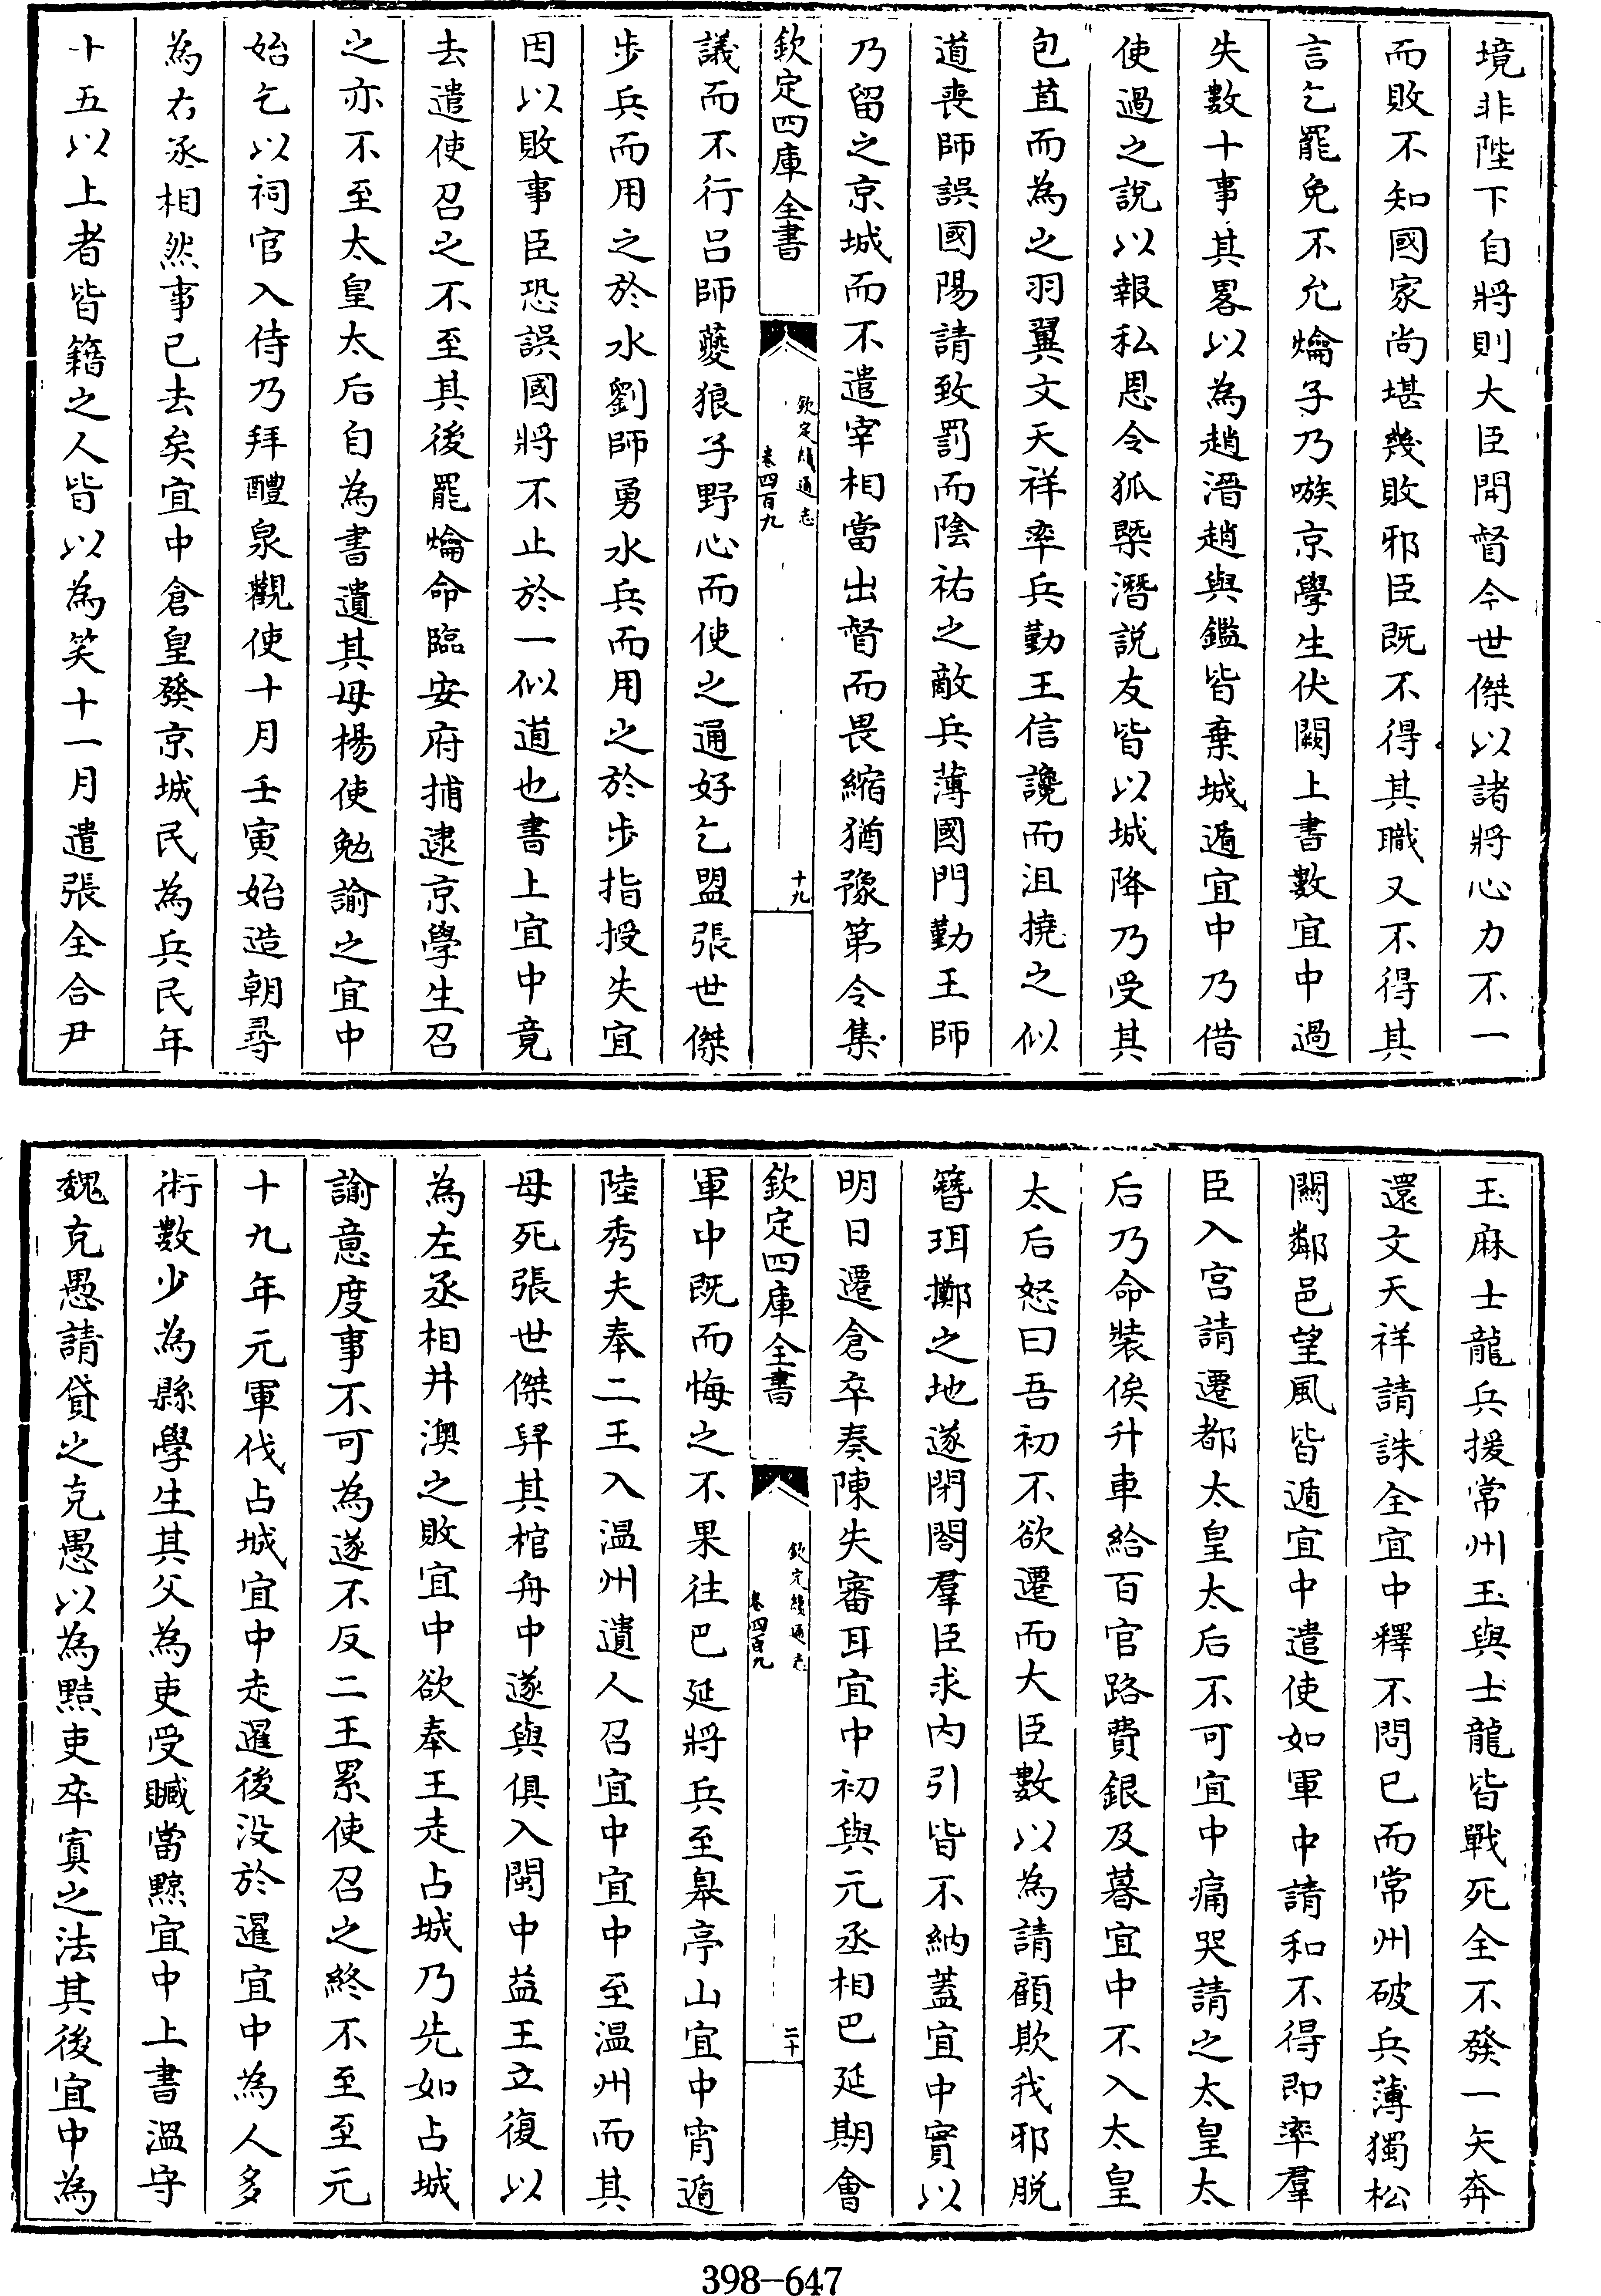 境非陛下自將則大臣開督今世傑以諸將心力不一
而敗不知國家尚堪幾敗邪臣既不得其職又不得其
言乞罷免不允爚子乃嗾京學生伏闕上書數宜中過
失數十事其畧以為趙溍趙與鑑皆棄城遁宜中乃借
使過之說以報私恩令狐槩潛說友皆以城降乃受其
包苴而為之羽翼文天祥率兵勤王信讒而沮撓之似
道喪師誤國陽請致罰而陰祐之敵兵薄國門勤王師
乃留之京城而不遣宰相當出督而畏縮猶豫第令集
欽定四庫全書
欽定續通志
卷四百九
十九
議而不行呂師夔狼子野心而使之通好乞盟張世傑
步兵而用之於水劉師勇水兵而用之於步指授失宜
因以敗事臣恐誤國將不止於一似道也書上宜中竟
去遣使召之不至其後罷爚命臨安府捕逮京學生召
之亦不至太皇太后自為書遺其母楊使勉諭之宜中
始乞以祠官入侍乃拜醴泉觀使十月壬寅始造朝尋
為右丞相然事已去矣宜中倉皇發京城民為兵民年
十五以上者皆籍之人皆以為笑十一月遣張全合尹
玉麻士龍兵援常州玉與士龍皆戰死全不發一矢奔
還文天祥請誅全宜中釋不問已而常州破兵薄獨松
關鄰邑望風皆遁宜中遣使如軍中請和不得即率羣
臣入宮請遷都太皇太后不可宜中痛哭請之太皇太
后乃命裝俟升車給百官路費銀及暮宜中不入太皇
太后怒曰吾初不欲遷而大臣數以為請顧欺我邪脱
簪珥擲之地遂閉閤羣臣求內引皆不納蓋宜中實以
明日遷倉卒奏陳失審耳宜中初與元丞相巴延期會
欽定四庫全書
欽定續通志
卷四百九
二十
軍中既而悔之不果往巴延將兵至臯亭山宜中宵遁
陸秀夫奉二王入温州遺人召宜中宜中至温州而其
母死張世傑舁其棺舟中遂與俱入閩中益王立復以
為左丞相井澳之敗宜中欲奉王走占城乃先如占城
諭意度事不可為遂不反二王累使召之終不至至元
十九年元軍伐占城宜中走暹後没於暹宜中為人多
術數少為縣學生其父為吏受贓當黥宜中上書温守
魏克愚請貸之克愚以為黠吏卒寘之法其後宜中為
398-647